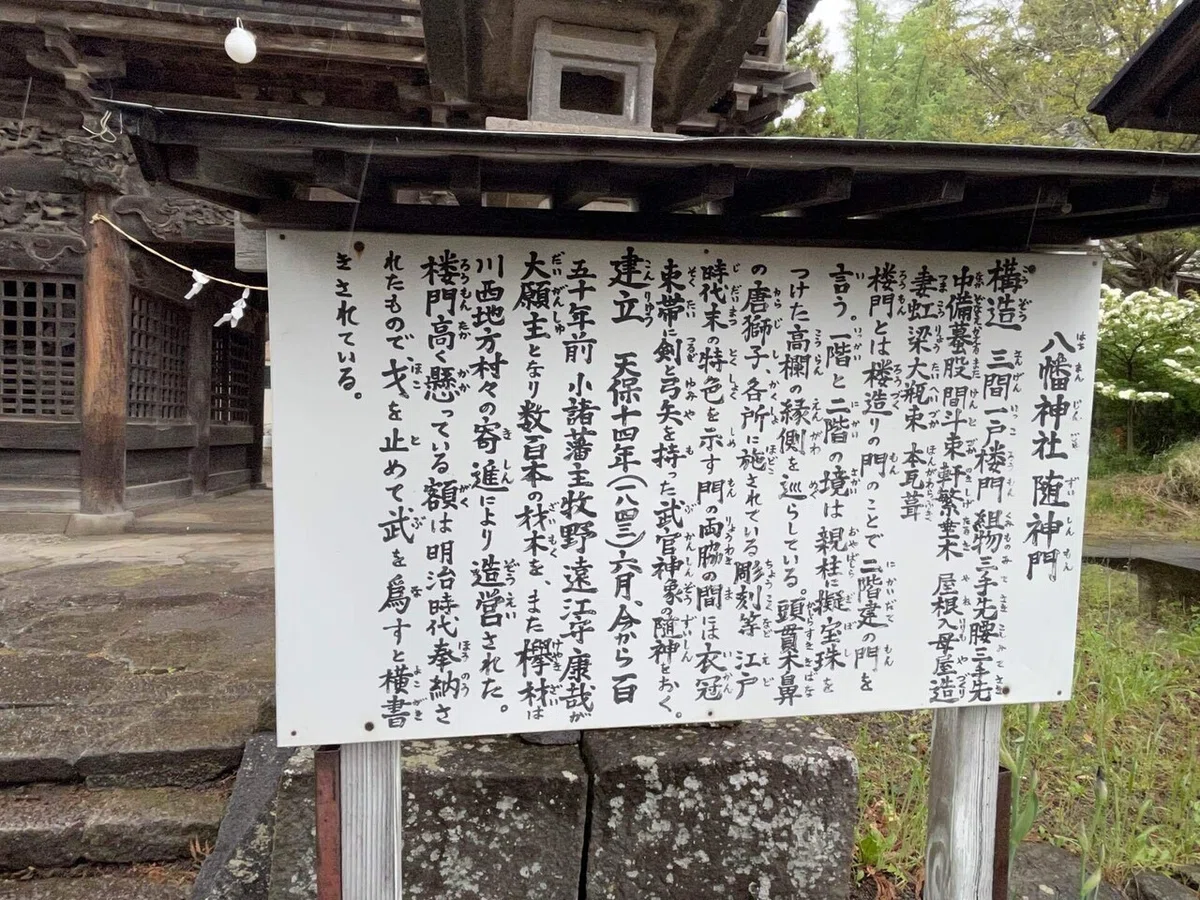 八幡神社 随神門
構造 三間一戸楼門 組物三手先腰三手先
中備蟇股間斗束軒繁垂木 屋根入母屋造
妻虹梁大瓶束 本瓦葺
楼門とは楼造りの門のことで二階建の門を
言う。一階と二階の境は親柱に擬宝珠を
つけた高欄の縁側を巡らしている。頭貫木鼻
の唐獅子、各所に施されている彫刻等 江戸
時代末の特色を示す門の両脇の間には衣冠
束帯に剣と弓矢を持った武官神象の随神をおく。
建立 天保十四年(一八四三)六月、今から百
五十年前 小諸藩主牧野遠江守康哉が
大願主となり数百本の材木を、また欅材は
川西地方村々の寄進により造営された。
楼門高く懸っている額は明治時代奉納さ
れたもので、戈を止めて武を為すと横書
きされている。